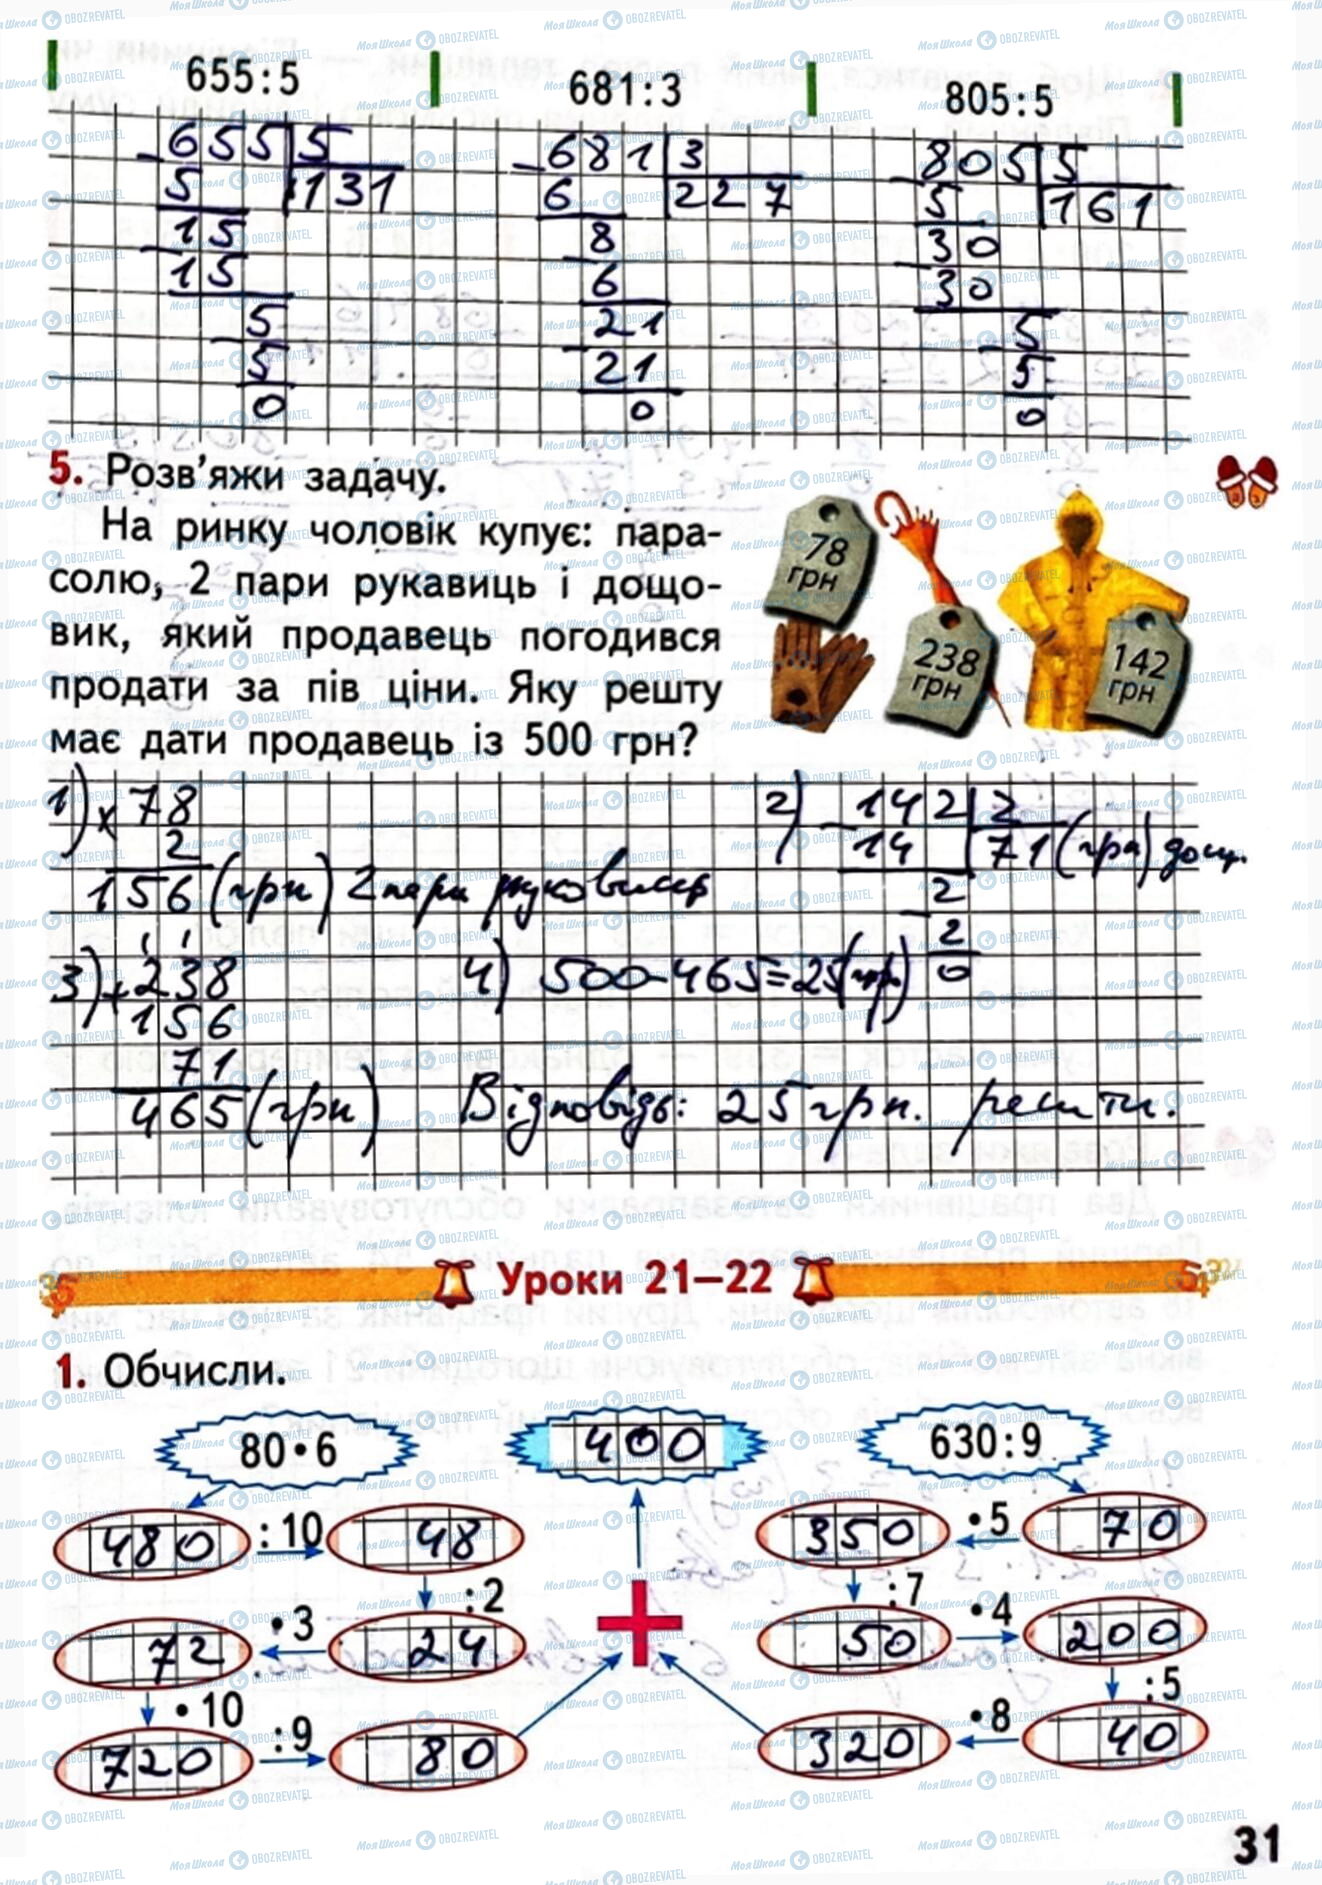 655:5 681:3 805:5
655 5 681 3 805 5
5 131 6 227 5 161
15 8 30
15 6 30
5 21 5
5 21 5
0 0 0
5. Розв’яжи задачу.
На ринку чоловік купує: пара-
солю, 2 пари рукавиць і дощо-
вик, який продавець погодився
продати за пів ціни. Яку решту
має дати продавець із 500 грн?
78 грн
238 грн
142 грн
1) × 78
2
156 (грн) 2 пари рукавиць
2) 142 2
14 71 (грн) дощ.
2
2
0
3) + 238
156
71
465 (грн)
4) 500-465=25 (грн)
Відповідь: 25 грн. решти.
Уроки 21–22
1. Обчисли.
80•6 400 630:9
480 :10 48 350 •5 70
:2 :7
72 •3 24 50 •4 200
•10 :5
720 :9 80 320 •8 40
31
МояШкола OBOZREVATEL